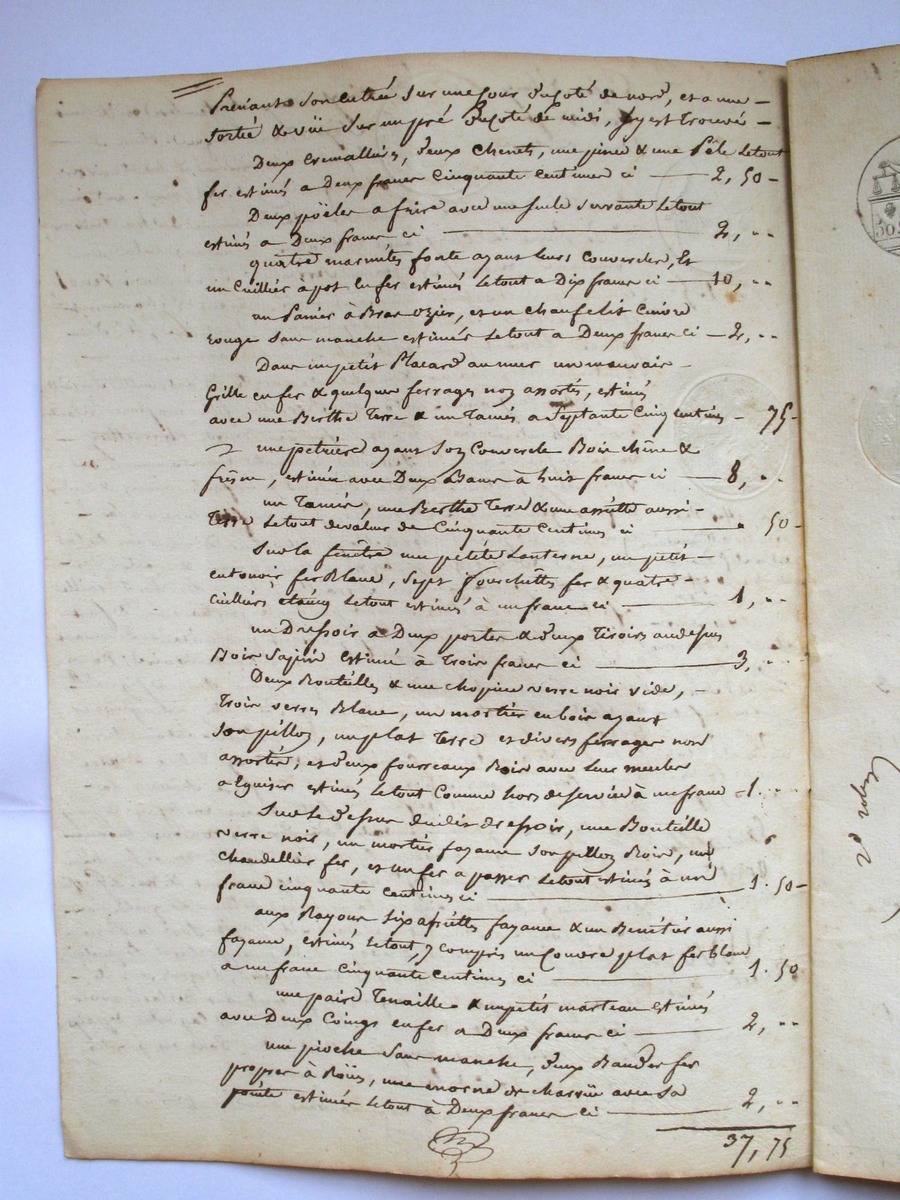 Prenant son entrée sur une cour du coté de nord, et a une
sortie & vüe sur un pré du coté de midi, j'y est trouvé
Deux Cremallieres, deux Chenets, une pince & une Pele le tout
fer estimés a Deux francs Cinquante Centimes ci 2, 50
Deux pöeles a frire avec une seule servante le tout
estimés a Deux francs ci 2, "
quatre marmites fonte ayant leurs Couvercles, Et
un Cuillier a pot en fer estimés le tout a Dix francs ci 10, "
un Panier à Bras Ozier, et un Chaufelit Cuivre
rouge sans manche estimés le tout a Deux francs ci 2, "
Dans un petit Placard au mur un mauvais
Grille en fer & quelque ferrages non assortis, estimés
avec une Berthe Terre & un Tamis a Septante Cinq Centimes 75
une petrière ayant son Couvercle Bois chêne &
frêne, estimée avec Deux Bancs à huit francs ci 8, "
un Tamis, une Berthe Terre & une assiette aussi
Terre le tout de valeur de Cinquante Centimes ci " 50
Sur la fenêtre une petite Lanterne, un petit
entonoir fer Blanc, Sept fourchettes fer & quatre
Cuilliers etaing le tout estimés à un franc ci 1, "
un Dressoir a Deux portes & deux Tiroirs au dessus
Bois Sapin estimé à trois francs ci 3, "
Deux Bouteilles & une chopine verre noir vide,
Trois verres Blanc, un mortier en bois ayant
son pillon, un plat Terre et divers ferrages non
assortis, et deux fourreaux Bois avec leur meules
a Eguiser estimés le tout Comme hors de service à un franc 1. "
Sur le dessus du dit dressoir, une Bouteille
verre noir, un mortier fayance son pillon Bois, un
Chandellier fer, et un fer a passer le tout estimés à un
franc cinquante Centimes ci 1. 50
aux Rayons Six assiettes fayance & un Benétier aussi
fayance, estimés le tout, y compris un Couvre plat fer blanc
a un franc cinquante Centimes ci 1. 50
une paire Tenailles & un petit marteau estimés
avec Deux Coings en fer a Deux francs ci 2, "
une pioche sans manche, deux Bandes fer
propres à Roües, une charrüe avec sa
pointe estimés le tout à Deux francs ci 2, "
37, 75